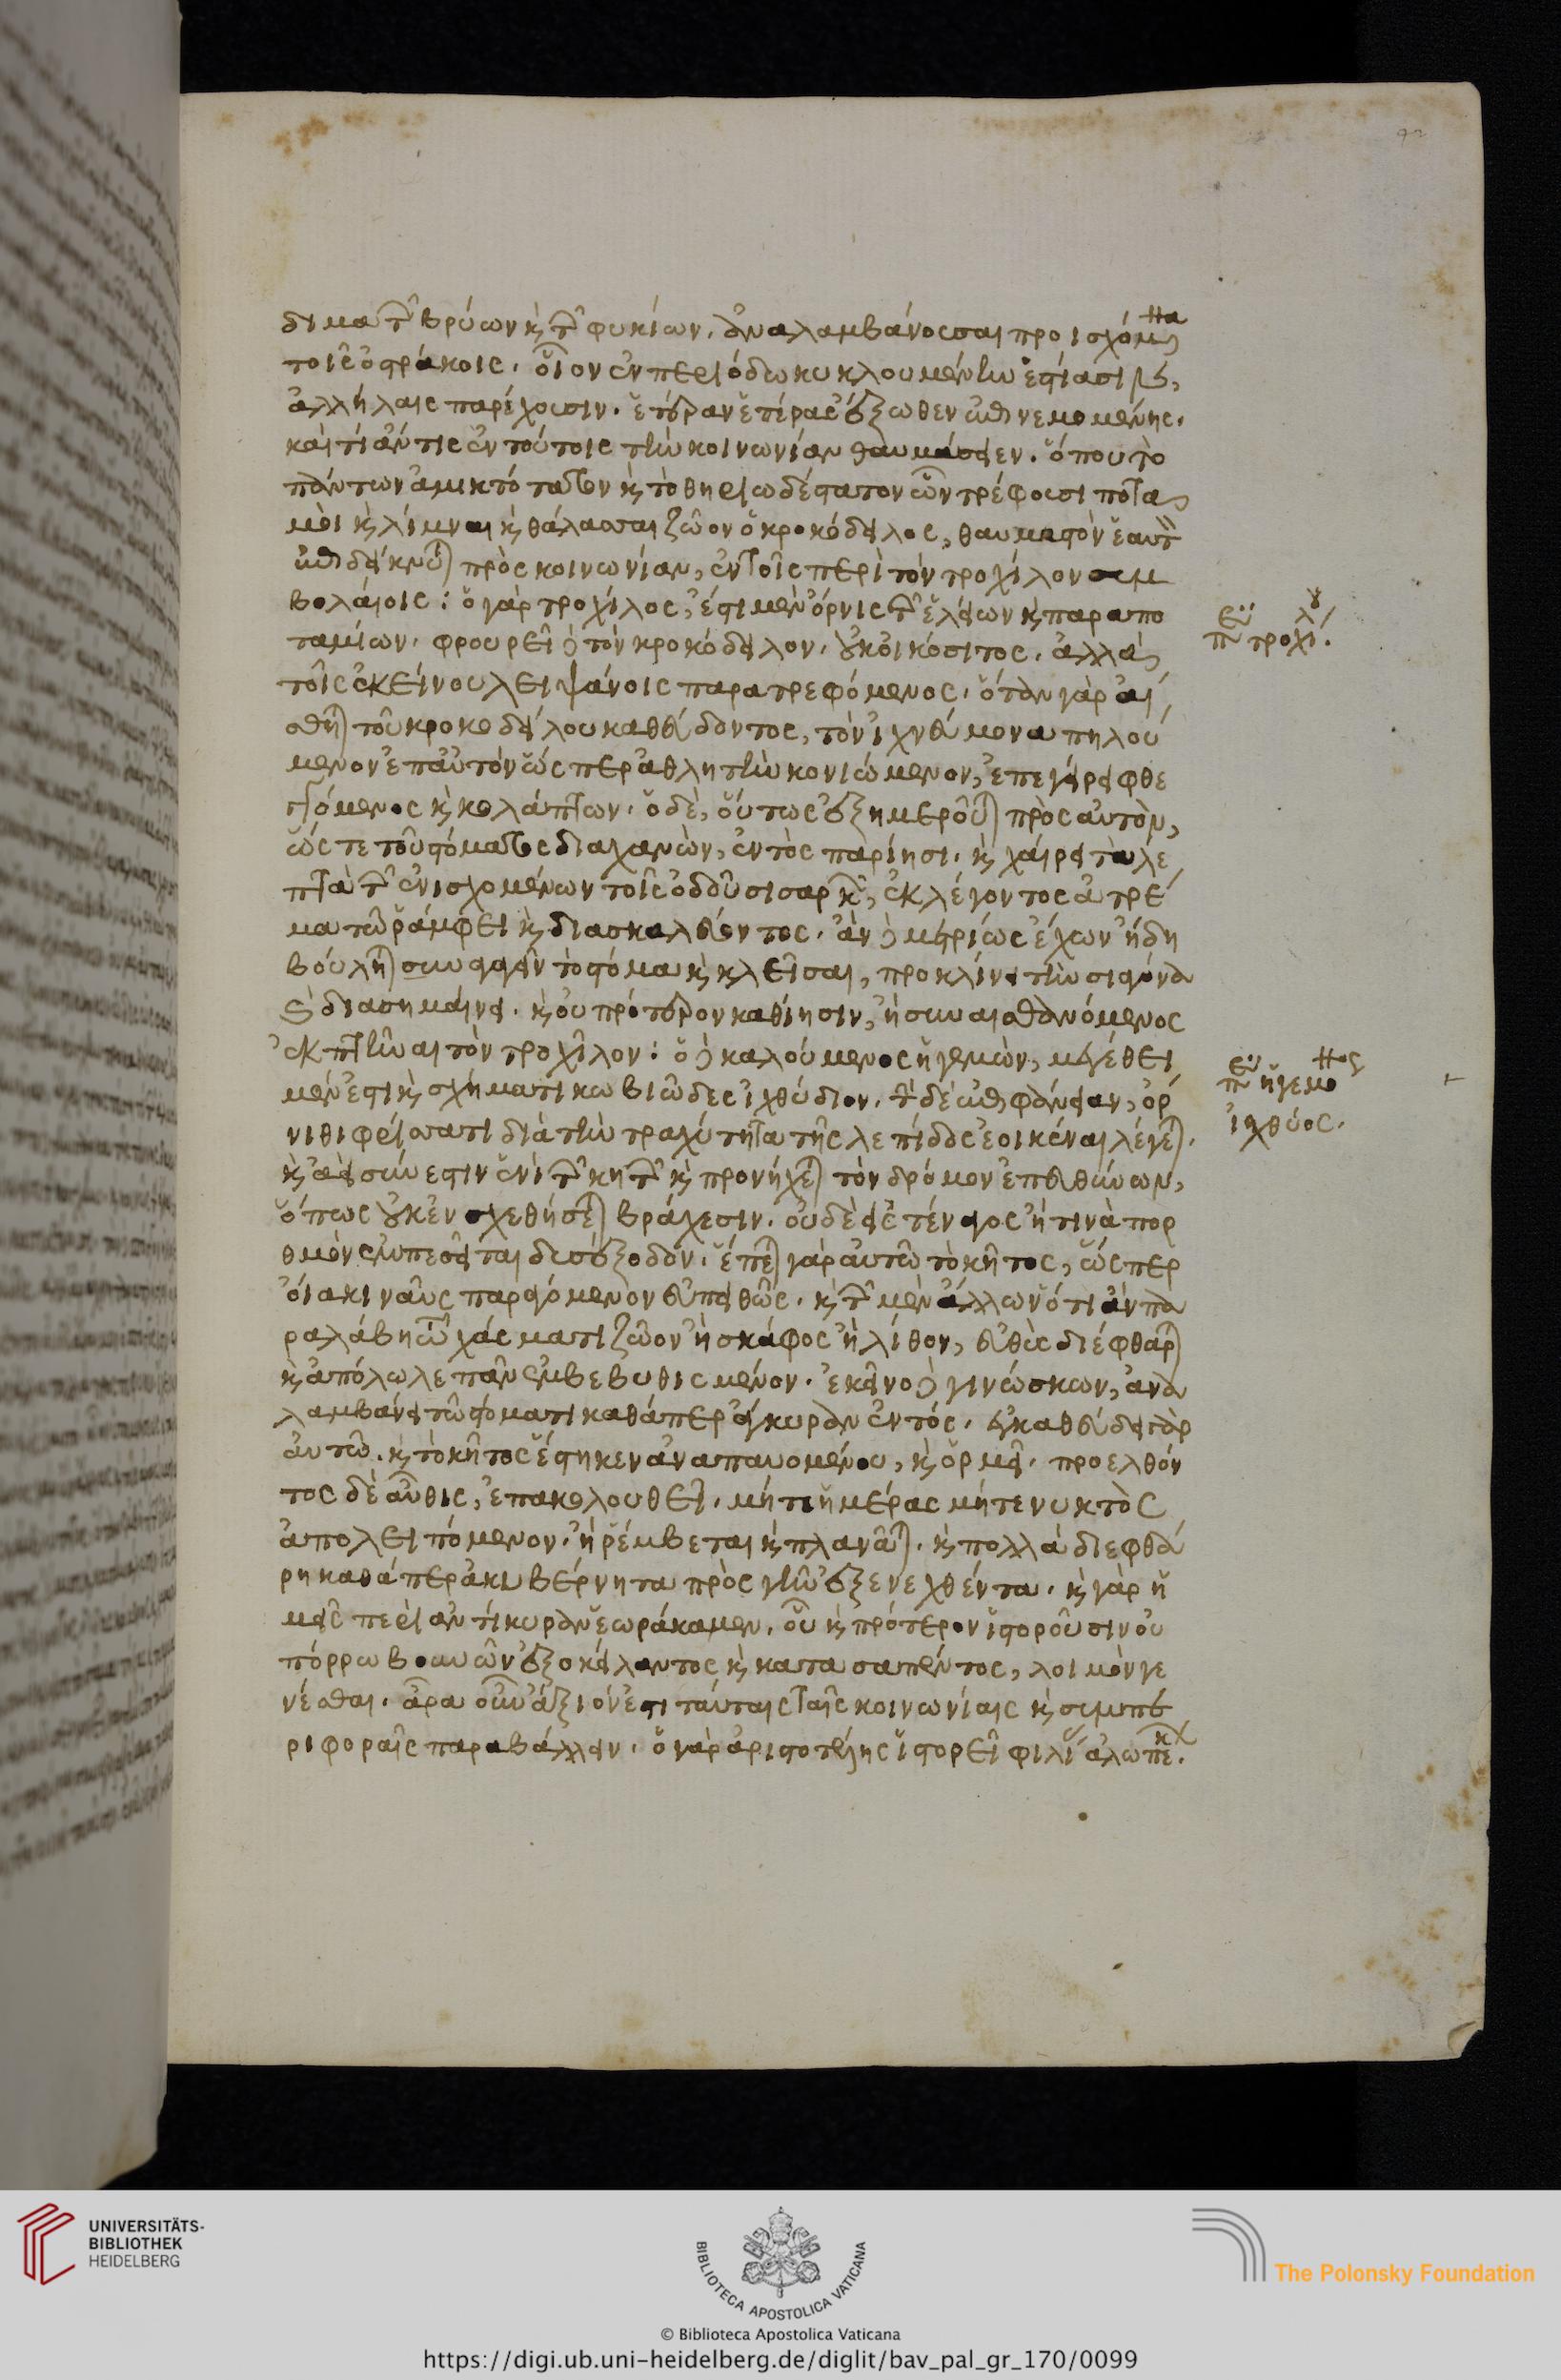 διμα τῶν βρύων καὶ τῶν φυκίων. ἀναλαμβάνουσαι προισχόμεναι
τοῖς ὀστράκοις. οἷον ἐν περιόδω κυκλουμένην ἑστίασιν,
ἀλλήλαις παρέχουσιν. ἑτέραν ἑτέρας ἔξωθεν ἐπινεμομένης.
καὶ τί ἄν τις ἐν τούτοις τὴν κοινωνίαν θαυμάσειεν. ὅπου τὸ
πάντων ἀμικτότατον καὶ τὸ θηριωδέστατον ὧν τρέφουσι ποτα
μοὶ καὶ λίμναι καὶ θάλασσαι ζῶον ὁ κροκόδειλος, θαυμαστὸν ἑαυτὸν
ἐπιδείκνυται πρὸς κοινωνίαν, ἐν τοῖς περὶ τὸν τροχίλον συμ
βολαίοις: ὁ γὰρ τροχίλος, ἐστι μὲν ὄρνις τῶν ἑλείων καὶ παραπο
ταμίων. φρουρεῖ δὲ τὸν κροκόδειλον. οὐκ οἰκόσιτος. ἀλλὰ
τοῖς ἐκείνου λειψάνοις παρατρεφόμενος. ὅταν γὰρ αἴ
σθηται τοῦ κροκοδείλου καθεύδοντος, τὸν ἰχνεύμονα πηλού
μενον ἐπ αὐτὸν ὥσπερ ἀθλητὴν κονιώμενον, ἐπεγείρει φθε
γγόμενος καὶ κολάπτων. ὁ δὲ, οὕτως ἐξημεροῦται πρὸς αὐτὸν,
ὥς τε τοῦ στόματος διαχανὼν, ἐντὸς παρίησι. καὶ χαίρει τὰ λε
πτὰ τῶν ἐνισχομένων τοῖς ὀδοῦσι σαρκῶν, ἐκλέγοντος ἀτρέ
μα τῶ ῥάμφει καὶ διασκαλεύοντος. ἂν δὲ μετρίως ἔχων ἤδη
βούληται συναγαγεῖν τὸ στόμα καὶ κλεῖσαι, προκλίνει τὴν σιαγόνα
καὶ διασημαίνει. καὶ οὐ πρότερον καθίησιν, ἢ συναισθανόμενος
ἐκπτῆναι τὸν τροχῖλον: ὁ δὲ καλούμενος ἡγεμὼν, μεγέθει
μέν ἐστι καὶ σχήματι κωβιῶδες ἰχθύδιον. τὴν δὲ ἐπιφάνειαν, ὀρ
νιθι φρίσσοντι διὰ τὴν τραχύτητα τῆς λεπίδος ἐοικέναι λέγεται.
καὶ ἀεὶ σύνεστιν ἑνὶ τῶν κητῶν καὶ προνήχεται τὸν δρόμον ἐπευθύνων,
ὅπως οὐκ ἐνσχεθήσεται βράχεσιν. οὐδὲ εἰς τέναγος ἤ τινα πορ
θμὸν ἐμπεσεῖται δυσέξοδον. ἕπεται γὰρ αὐτῶ τὸ κῆτος, ὥσπερ
οἴακι ναῦς παραγόμενον εὐπειθῶς. καὶ τῶν μὲν ἄλλων ὅτι ἂν πα
ραλάβη τῶ χάσματι ζῶον ἢ σκάφος ἢ λίθον, εὐθὺς διέφθαρται
καὶ ἀπόλωλε πᾶν ἐμβεβυθισμένον. ἐκεῖνο δὲ γινώσκων, ἀνα
λαμβάνει τῶ στόματι καθάπερ ἄγκυραν ἐντός. ἐγκαθεύδει γὰρ
αὐτῶ. καὶ τὸ κῆτος ἕστηκεν ἀναπαυομένου, καὶ ὁρμεῖ. προελθόν
τος δὲ αὖθις, ἐπακολουθεῖ. μήτε ἡμέρας μήτε νυκτὸς
ἀπολειπόμενον. ἢ ῥέμβεται καὶ πλανᾶται. καὶ πολλὰ διεφθά
ρη καθάπερ ἀκυβέρνητα πρὸς γῆν ἐξενεχθέντα. καὶ γὰρ ἡ
μεῖς περὶ ἀντίκυραν ἑωράκαμεν. οὗ καὶ πρότερον ἱστοροῦσιν οὐ
πόρρω βουνῶν ἐξοκείλαντος καὶ κατασαπέντος, λοιμὸν γε
νέσθαι. ἆρα οὖν ἄξιόν ἐστι ταύταις ταῖς κοινωνίαις καὶ συμπε
ριφοραῖς παραβάλλειν. ὁ γὰρ ἀριστοτέλης ἱστορεῖ φιλίας ἀλωπέκων
περὶ τροχίλου.
περὶ ἡγεμόνος
ἰχθύος.
UNIVERSITÄTS-
BIBLIOTHEK
HEIDELBERG
BIBLIOTECA APOSTOLICA VATICANA
The Polonsky Foundation
© Biblioteca Apostolica Vaticana
https://digi.ub.uni-heidelberg.de/diglit/bav_pal_gr_170/0099